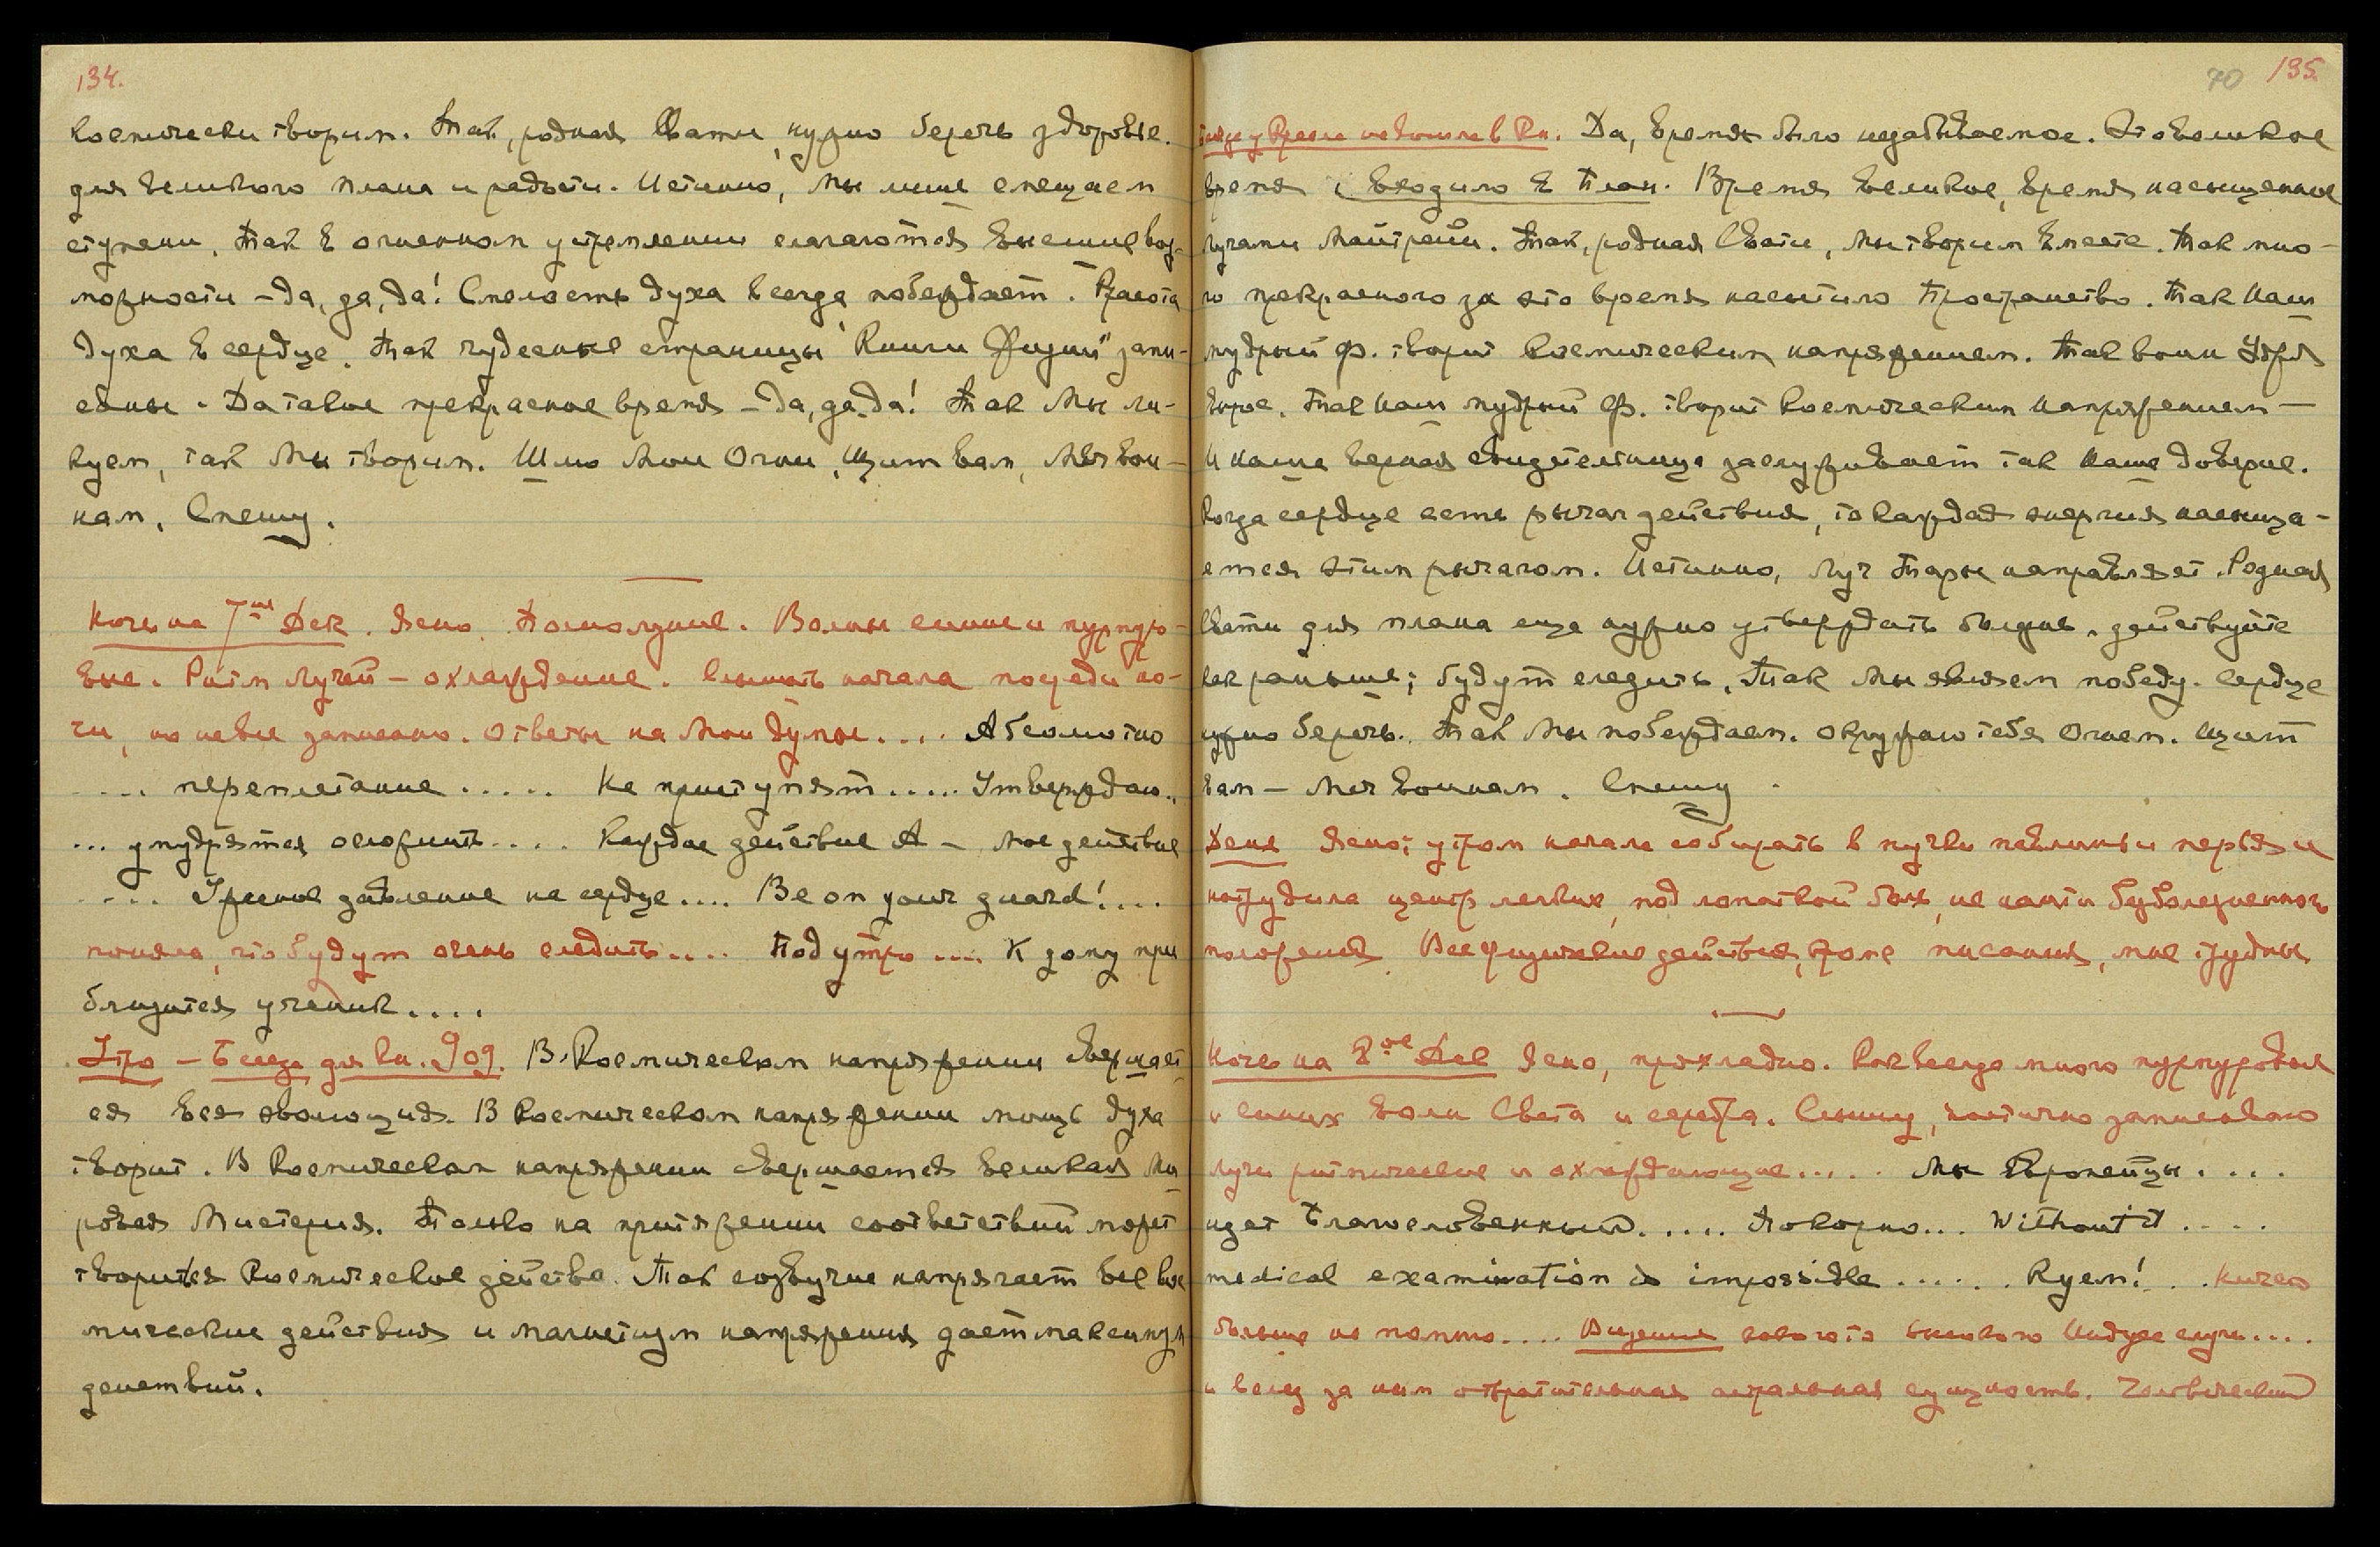 134.
космически творим. Так, родная Свати, нужно беречь здоровье.
для великого плана и радости. Истинно, мы лишь смещаем
ступени. Так в огненном устремлении слагаются высшие воз-
можности – да, да, да! Смелость духа всегда побеждает. Красота
духа в сердце. Так чудесные страницы "Книги Жизни" запи-
саны. Да такое прекрасное время – да, да, да! Так Мы ли-
куем, так Мы творим. Шлю Мои Огни, Щит вам, Меч вои-
нам. Спешу.
Ночь на 7ое Дек. Ясно. Полнолуние. Волны синие и пурпуро-
вые. Ритм лучей – охлаждение. Слышать начала посреди но-
чи, но не все записано. Ответы на Мои думы.... Абсолютно
.... переплетание ..... Не приступят ..... Утверждаю..
... умудрятся осложнить.... Каждое действие А – мое действие
.... Ужасное давление на сердце.... Be on your guard! ....
поняла, что будут очень следить.... Под утро .... К дому при
близится ученик....
Утро – Беседа для Кн. 909. В Космическом напряжении свершает
ся вся эволюция. В Космическом напряжении мощь духа
творит. В Космическом напряжении свершается великая Ми
ровая Мистерия. Только на притяжении соответствий может
твориться Космическое действо. Так созвучие напрягает все кос
мические действия и магнетизм напряжения дает максимум
действий.
70 135.
не вошла в Кн. Да, время было незабываемое. Это великое
время и входило в План. Время великое, время насыщенное
лучами Майтрейи. Так, родная Свати, мы творим вместе. Так мно-
го прекрасного за это время насытило Пространство. Так Наш
мудрый Ф. творит космическим напряжением. Так воин
Так Наш мудрый Ф. творит космическим напряжением –
И наша верная свидетельница заслуживает так наше доверие.
Когда сердце есть рычаг действия, то каждая энергия насыща-
ется этим рычагом. Истинно, луч Тары направляет. Родная
Свати для плана еще нужно утвердить бытие. действуйте
как раньше; будут следить. Так Мы являем победу. Сердце
нужно беречь. Так Мы побеждаем. Окружаю тебя Огнем. Щит
вам – Меч воинам. Спешу.
День Ясно; утром начала собирать в пучки павлиньи перья и
натрудила центр легких, под лопаткой боль, не найти безболезненного
положения. Все физические действия, кроме писания, мне трудны.
Ночь на 8ое Дек Ясно, прохладно. Как всегда много пурпуровых
и синих волн Света и серебра. Слышу, частично записываю
лучи ритмические и охлаждающие..... Мы Европейцы....
идет Благословенный..... Покорно... Without it ....
medical examination is impossible ...... Куем! ... ничего
больше не помню.... Видение какого то высокого Индуса ....
и вслед за ним отвратительная астральная сущность. Человеческий